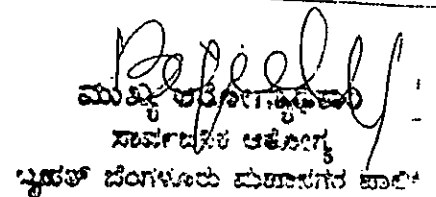 ಮುಖ್ಯ ಆರೋಗ್ಯಾಧಿಕಾರಿ
ಸಾರ್ವಜನಿಕ ಆರೋಗ್ಯ
ಬೃಹತ್ ಬೆಂಗಳೂರು ಮಹಾನಗರ ಪಾಲಿಕೆ